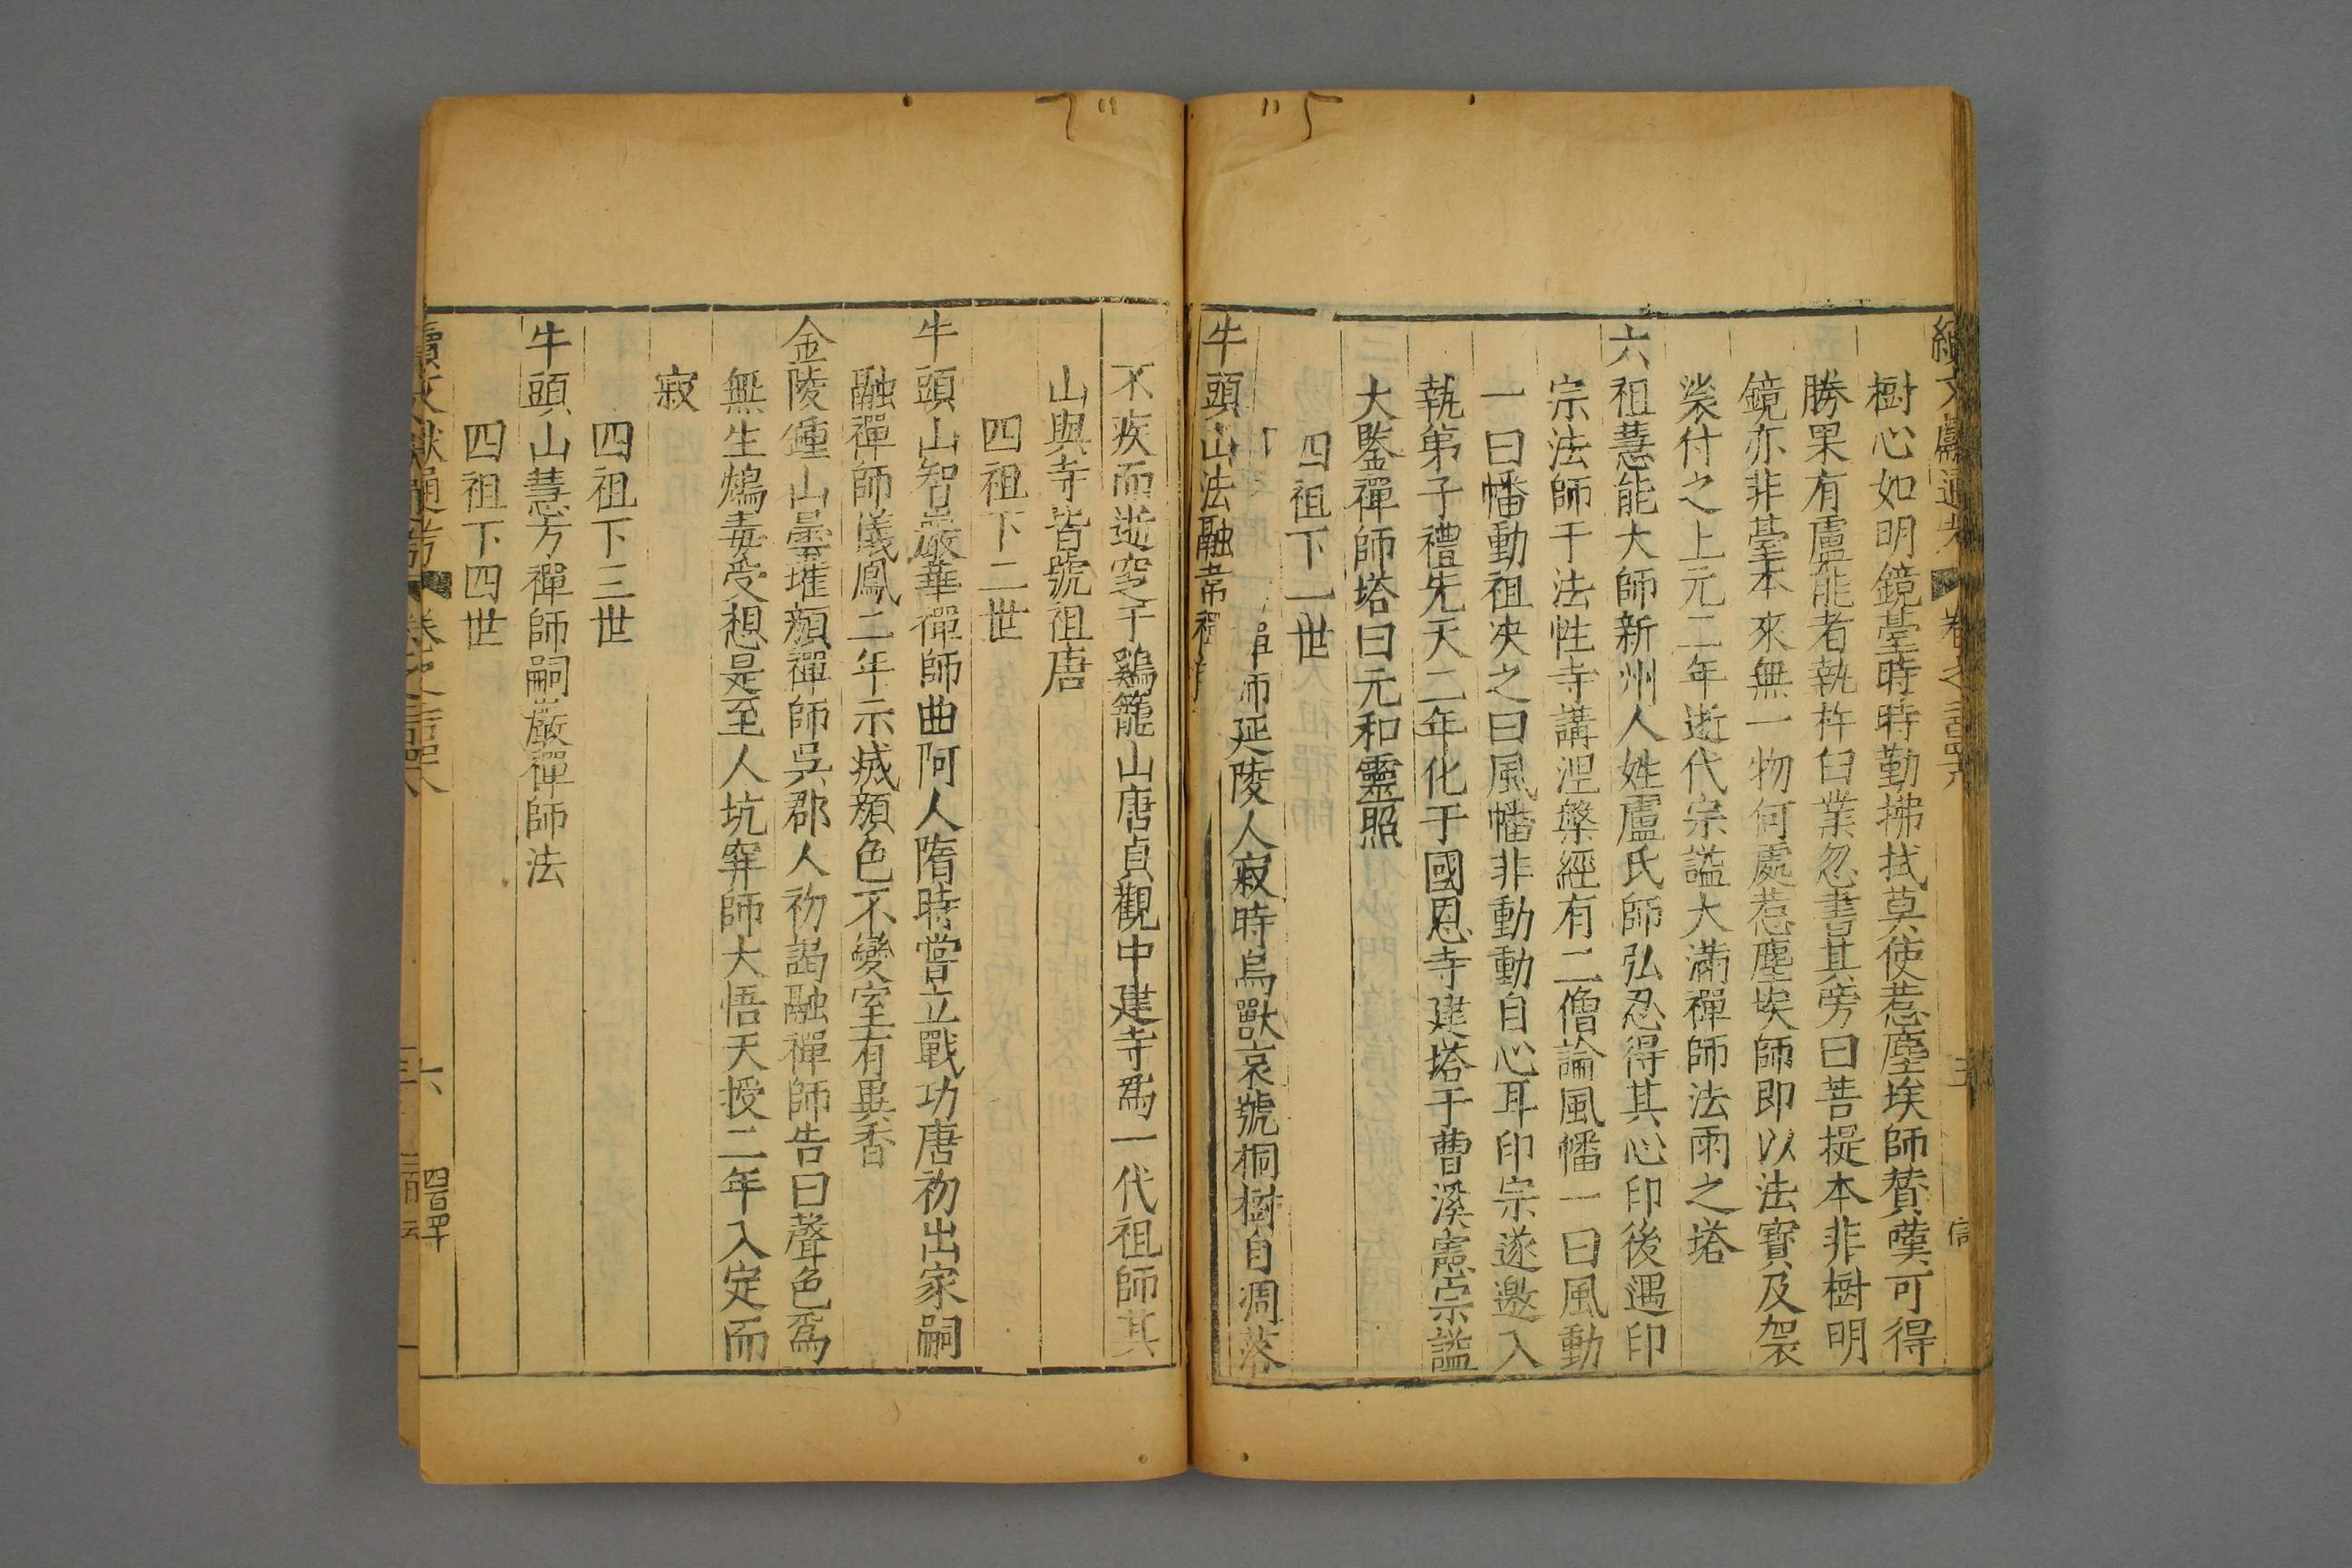 樹心如明鏡臺時時勤拂拭莫使惹塵埃師賛嘆可得
勝果有盧能者執杵臼業忽書其旁曰菩提本非樹明
鏡亦非臺本來無一物何處惹塵埃師即以法寶及袈
裟付之上元二年逝代宗謚大滿禪師法雨之塔
六祖慧能大師新州人姓盧氏師弘忍得其心印後遇印
宗法師于法性寺講涅槃經有二僧論風幡一曰風動
一曰幡動祖决之曰風幡非動動自心耳印宗遂邀入
執弟子禮先天二年化于國恩寺建塔于曹溪憲宗謚
大鑒禪師塔曰元和靈照
四祖下一世
牛頭山法融禪師延陵人寂時鳥獸哀號桐樹自凋落
不疾而逝窆于鷄籠山唐貞觀中建寺爲一代祖師其
山與寺皆號祖唐
四祖下二世
牛頭山智嚴華禪師曲阿人隋時嘗立戰功唐初出家嗣
融禪師儀鳳二年示㓕顔色不變室有異香
金陵鍾山曇璀顔禪師吳郡人初謁融禪師告曰聲色爲
無生鴆毒受想是至人坑穽師大悟天授二年入定而
寂
四祖下三世
牛頭山慧方禪師嗣嚴禪師法
四祖下四世
續文獻通考 卷之
六